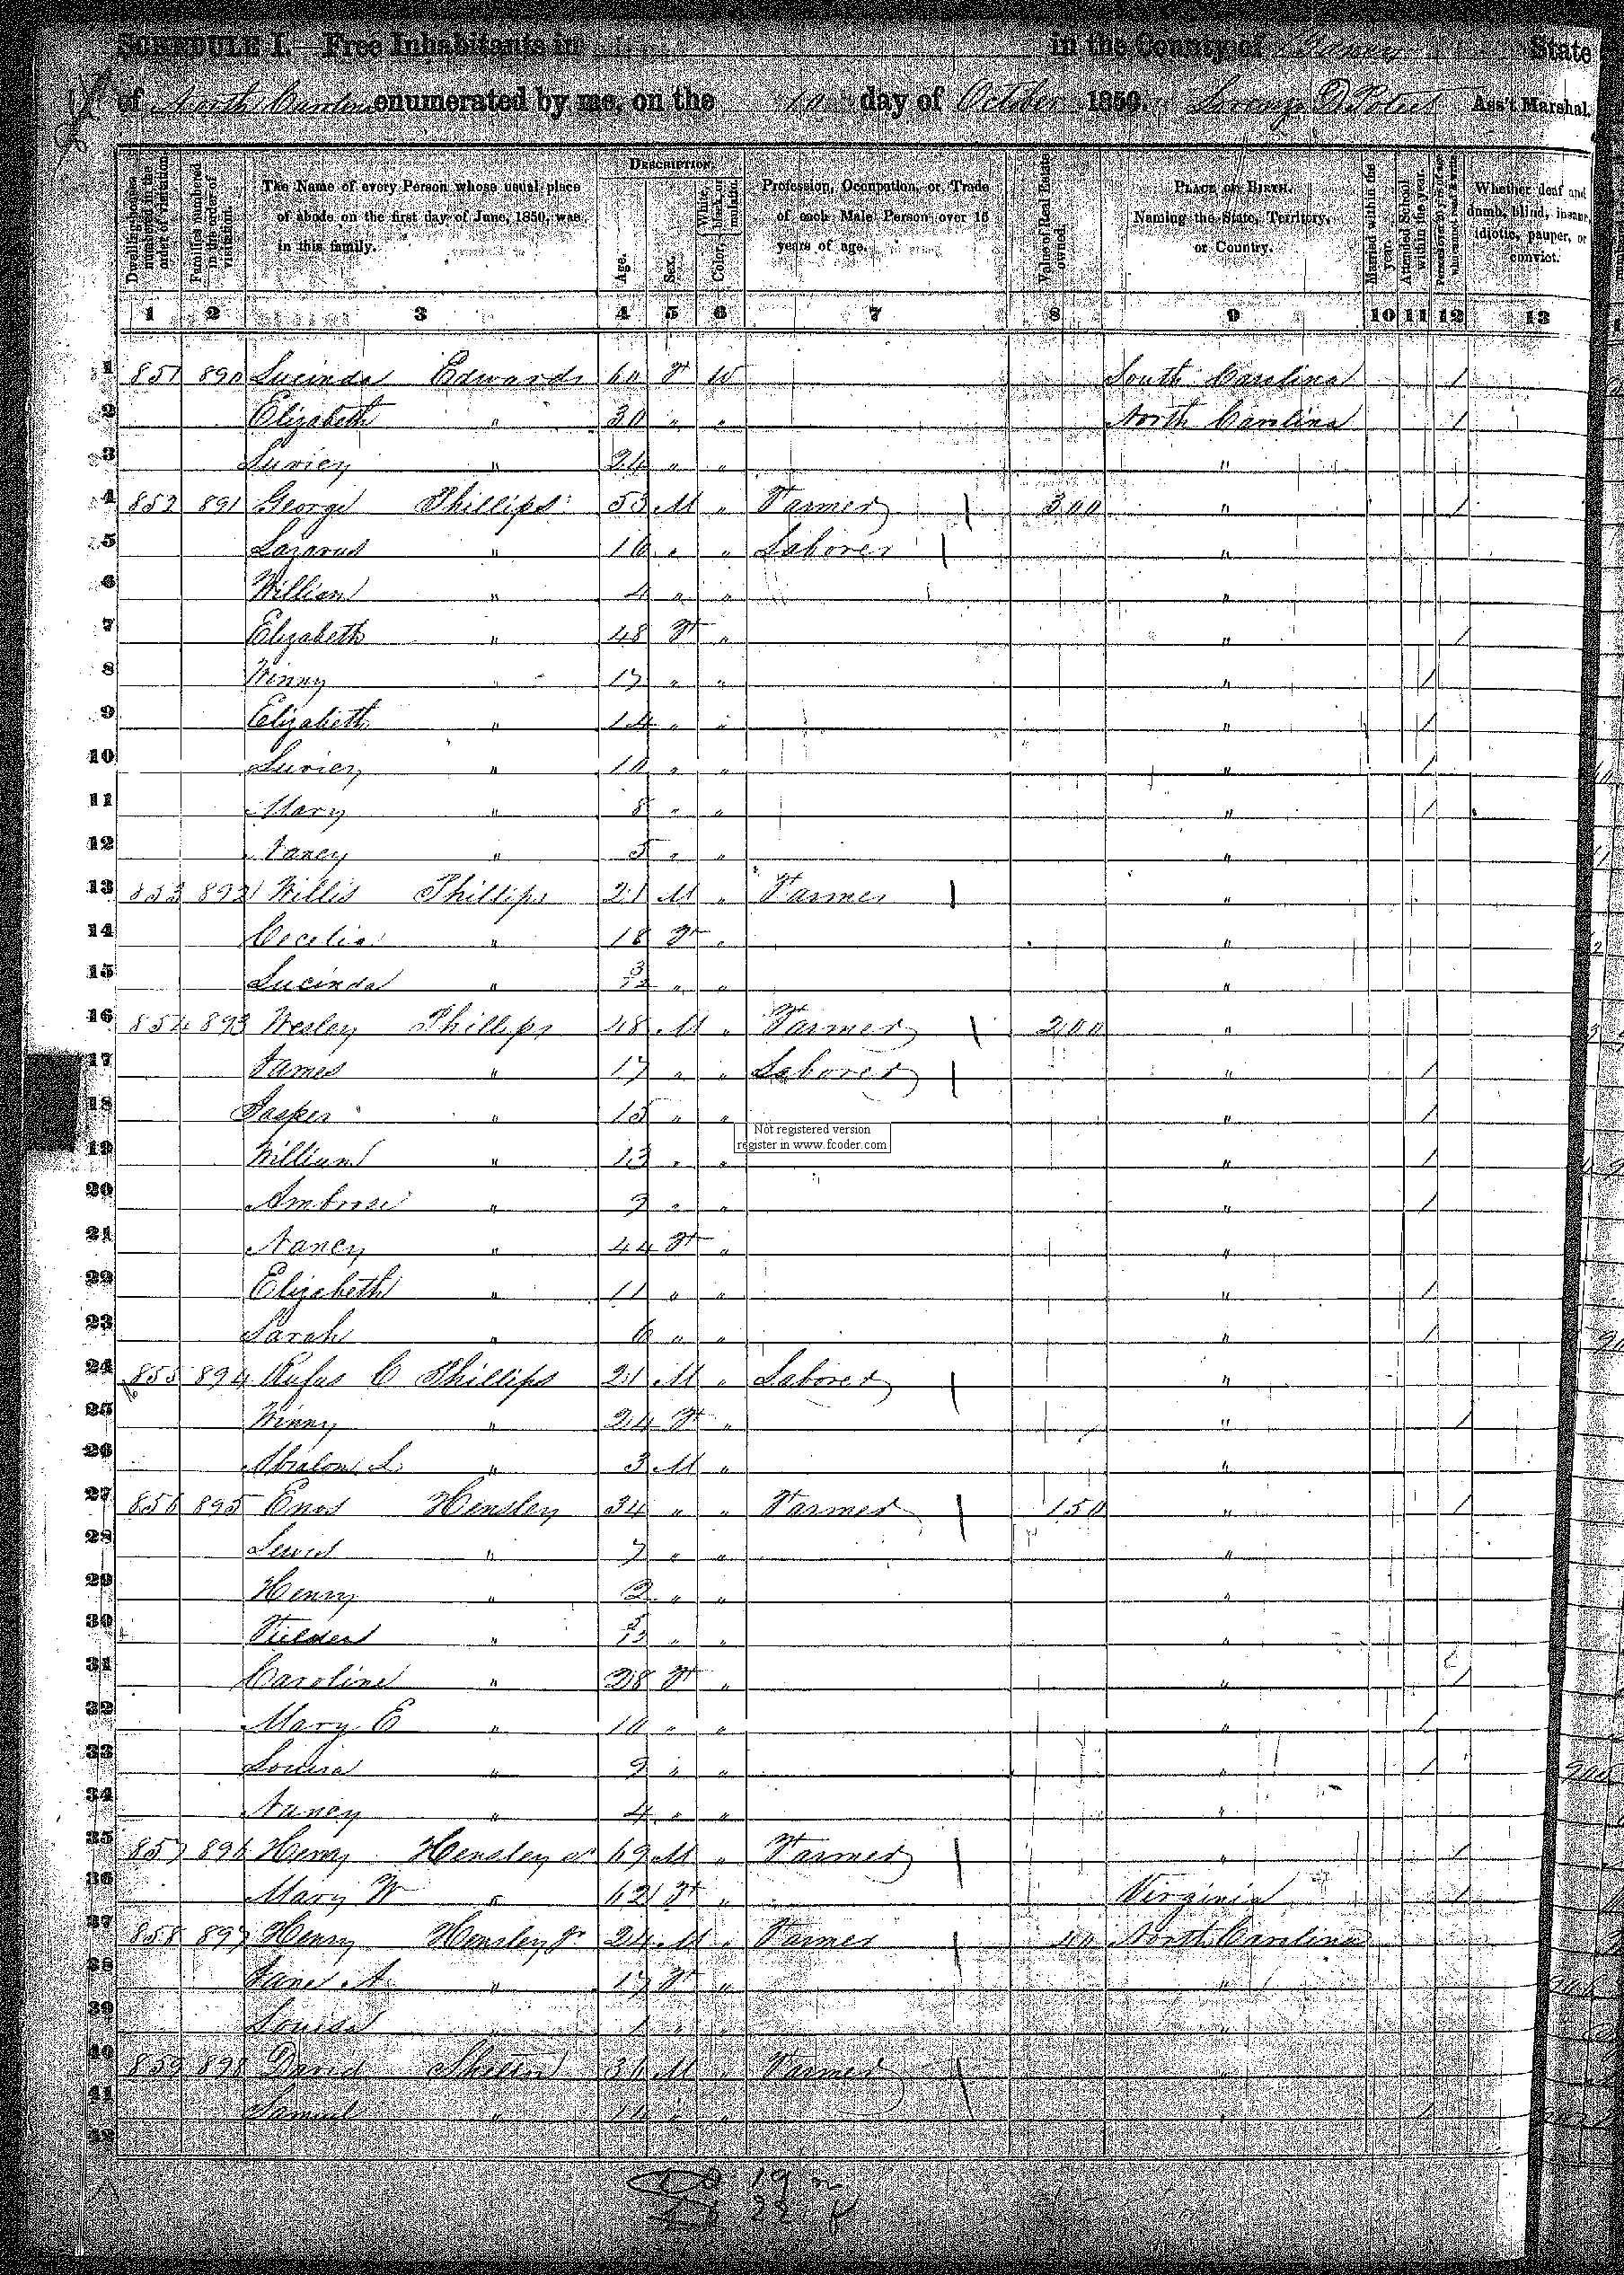 SCHEDULE I.—Free Inhabitants in in the County of Yancey State
of North Carolina enumerated by me, on the 10 day of October 1850. Lorenzo D Poteet Ass't Marshal.
Dwelling-houses numbered in the order of visitation.
Families numbered in the order of visitation.
The Name of every Person whose usual place of abode on the first day of June, 1850, was in this family.
DESCRIPTION.
Age.
Sex.
Color, White, black, or mulatto.
Profession, Occupation, or Trade of each Male Person over 15 years of age.
Value of Real Estate owned.
PLACE OF BIRTH. Naming the State, Territory, or Country.
Married within the year.
Attended School within the year.
Persons over 20 y'rs of age who cannot read & write.
Whether deaf and dumb, blind, insane, idiotic, pauper, or convict.
1 2 3 4 5 6 7 8 9 10 11 12 13
1 851 890 Lucinda Edwards 60 F W South Carolina 1
2 Elizabeth " 30 " " North Carolina 1
3 Luvicy " 24 " " "
4 852 891 George Phillips 53 M " Farmer 300 " 1
5 Lazarus " 16 " " Laborer "
6 William " 4 " " "
7 Elizabeth " 48 F " " 1
8 Winny " 17 " " " 1
9 Elizabeth " 14 " " " 1
10 Luvicy " 10 " " " 1
11 Mary " 8 " " " 1
12 Nancy " 5 " " "
13 853 892 Willis Phillips 21 M " Farmer "
14 Cecelia " 18 F " "
15 Lucinda " 3/12 " " "
16 854 893 Wesley Phillips 48 M " Farmer 200 "
17 James " 17 " " Laborer " 1
18 Jasper " 15 " " " 1
Not registered version
register in www.fcoder.com
19 William " 13 " " " 1
20 Ambrose " 9 " " " 1
21 Nancy " 44 F " "
22 Elizabeth " 11 " " " 1
23 Sarah " 6 " " " 1
24 855 894 Rufus C Phillips 21 M " Laborer "
25 Winny " 24 F " " 1
26 Absalom L " 3 M " "
27 856 895 Enos Hensley 34 " " Farmer 150 " 1
28 Lewis " 7 " " "
29 Henry " 2 " " "
30 " 5/12 " "
31 Caroline " 28 F " " 1
32 Mary E " 10 " " " 1
33 Louisa " 9 " " " 1
34 Nancy " 4 " " "
35 857 896 Henry Hensley Sr 69 M " Farmer " 1
36 Mary W " 62 F " Virginia 1
37 858 897 Henry Hensley Jr 24 M " Farmer 40 North Carolina
38 Jane A " 17 F " "
39 Louisa " 1 " " "
40 859 898 David Shelton 36 M " Farmer "
41 Samuel " " " " 1
42
19 m
22 f